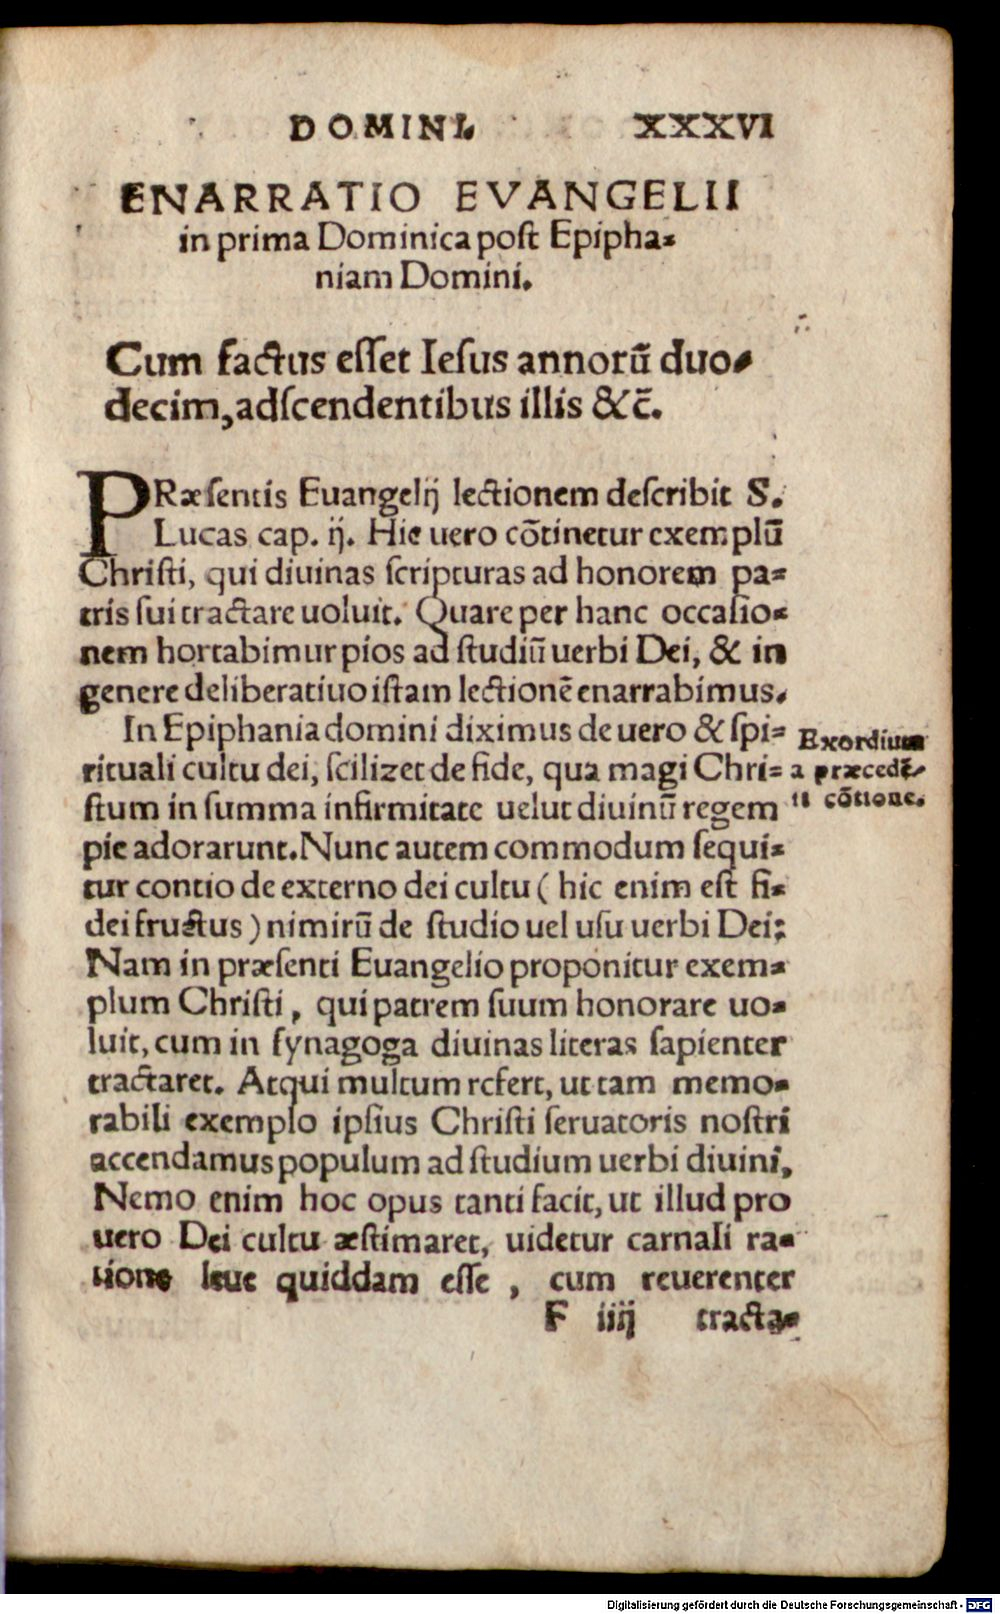 DOMINI. XXXVI
ENARRATIO EVANGELII
in prima Dominica post Epipha-
niam Domini.
Cum factus esset Iesus annorũ duo-
decim, adscendentibus illis &c̃.
PRæsentis Euangelij lectionem describit S.
Lucas cap. ij. Hic uero cõtinetur exemplũ
Christi, qui diuinas scripturas ad honorem pa-
tris sui tractare uoluit. Quare per hanc occasio-
nem hortabimur pios ad studiũ uerbi Dei, & in
genere deliberatiuo istam lectionẽ enarrabimus.
In Epiphania domini diximus de uero & spi-
rituali cultu dei, scilizet de fide, qua magi Chri-
stum in summa infirmitate uelut diuinũ regem
pie adorarunt. Nunc autem commodum sequi-
tur contio de externo dei cultu ( hic enim est fi-
dei fructus ) nimirũ de studio uel usu uerbi Dei;
Nam in præsenti Euangelio proponitur exem-
plum Christi, qui patrem suum honorare uo-
luit, cum in synagoga diuinas literas sapienter
tractaret. Atqui multum refert, ut tam memo-
rabili exemplo ipsius Christi seruatoris nostri
accendamus populum ad studium uerbi diuini,
Nemo enim hoc opus tanti facit, ut illud pro
uero Dei cultu æstimaret, uidetur carnali ra-
tione leue quiddam esse, cum reuerenter
F iiij tracta-
Exordium
a præcedẽ-
ti cõtione.
Digitalisierung gefördert durch die Deutsche Forschungsgemeinschaft - DFG